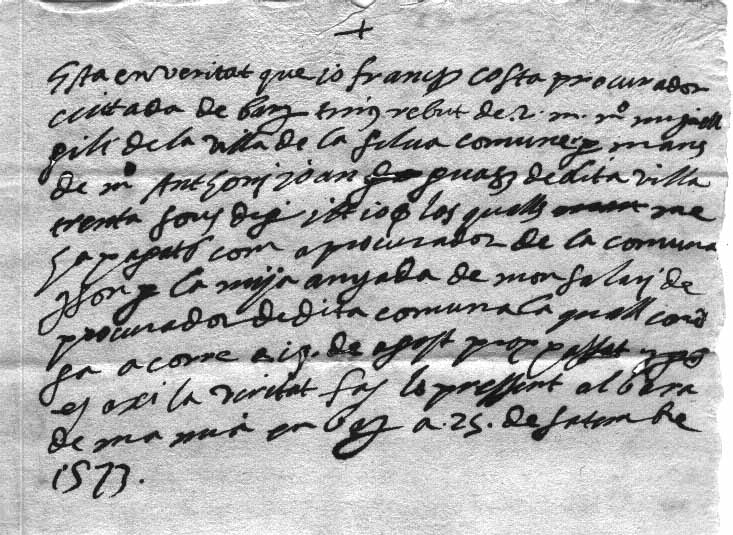 +
Esta en veritat que jo franc costa procurador
ciuttada de bar tinc rebut de
gili de la villa de la selua comune p mans
de mº Anthoni joan guasz de dita villa
trenta sous dic los qualls me
ha pagats com a procurador de la comuna
y son p la mija anyada de mon salari de
procurador de dita comuna la quall
sa a corre de agost prop passat
es axi la veritat fas lo pressent albara
de ma mia en bar a 25 de satembre
1573.